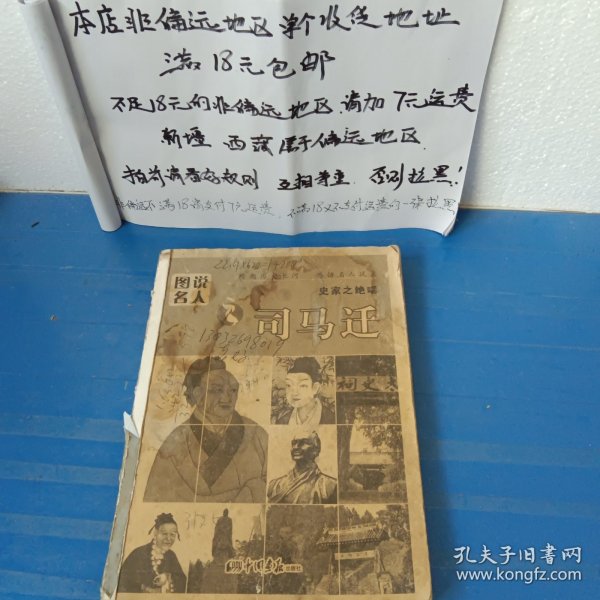 本店非偏远地区单个收货地址
满18元包邮
不足18元的非偏远地区,请加7元运费
新疆 西藏属于偏远地区
拍前请看好规则 互相尊重,否则拉黑!
非偏远不满18请支付7元运费,不满18又不支付运费的一律拉黑
图说
名人
史家之绝唱
司马迁
祠
出版社
孔夫子旧书网
www.kongfz.com